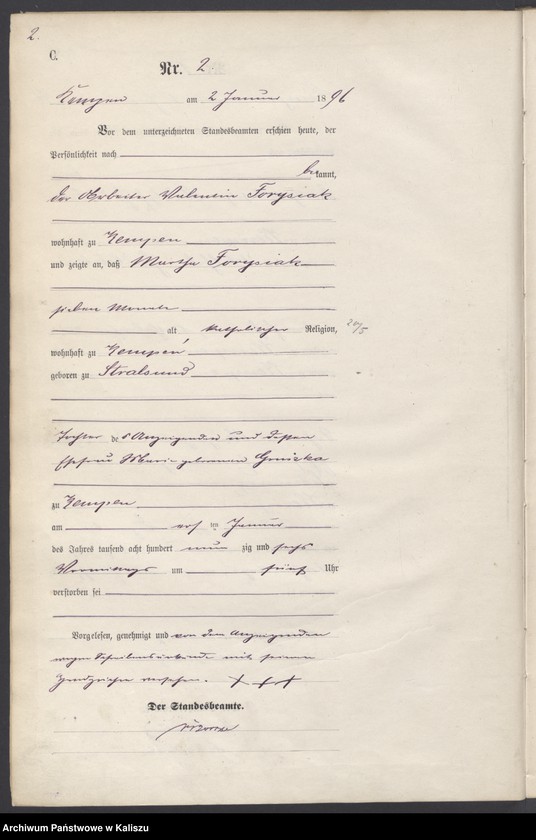 2.
C.
Nr. 2.
Kempen am 2 Januar 1896
Vor dem unterzeichneten Standesbeamten erschien heute, der
Persönlichkeit nach
bekannt,
der Arbeiter Valentin Forysiak
wohnhaft zu Kempen
und zeigte an, daß Martha Forysiak
sieben Monate
alt katholischer Religion,
20/5
wohnhaft zu Kempen
geboren zu Stralsund
Tochter des Anzeigenden und dessen
Ehefrau Marie geborenen
zu Kempen
am ersten Januar
des Jahres tausend acht hundert neunzig und sechs
Vormittags um fünf Uhr
verstorben sei
Vorgelesen, genehmigt und von dem Anzeigenden
wegen Schreibensunkunde mit seinem
Handzeichen versehen. +++
Der Standesbeamte.
Archiwum Państwowe w Kaliszu